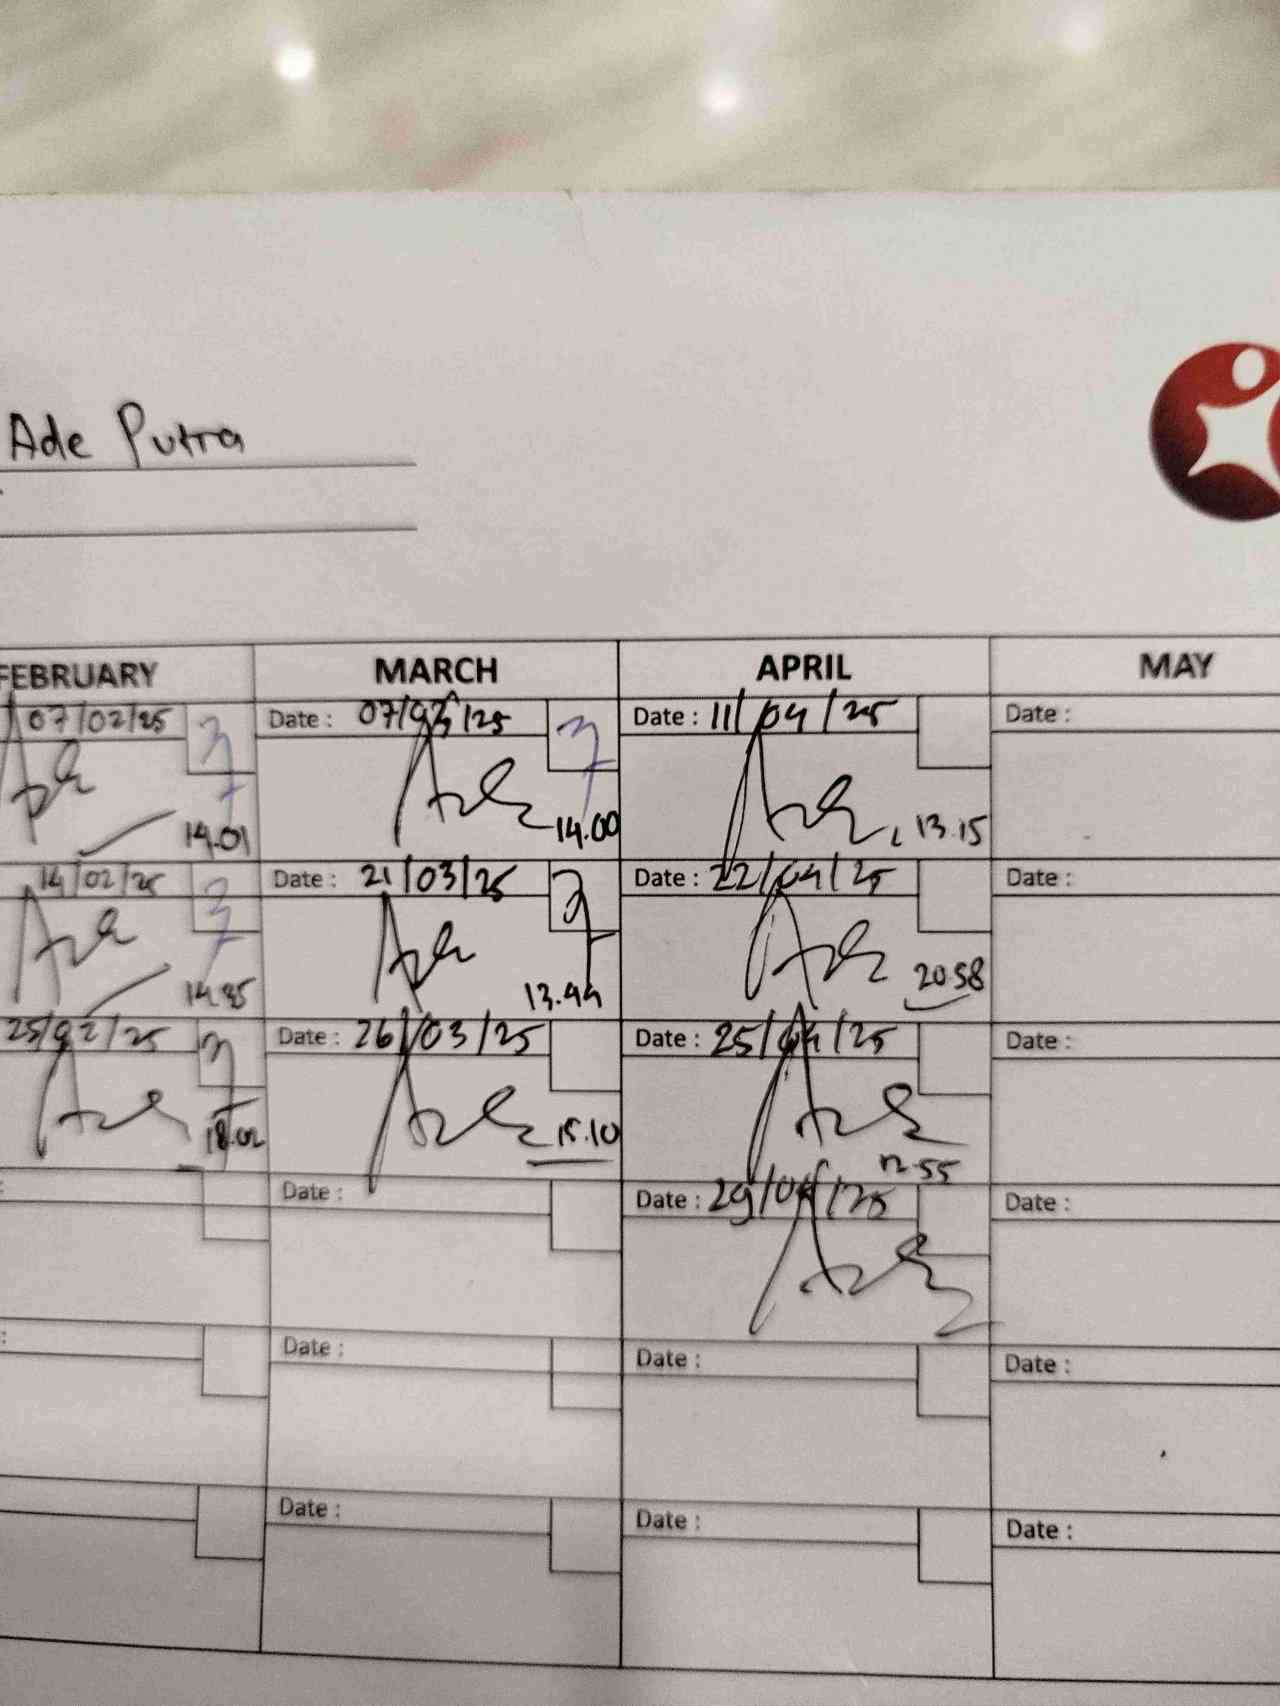 Ade Putra
FEBRUARY MARCH APRIL MAY
07/02/25 Date : 07/03/25 Date : 11/04/25 Date :
Ade Ade
14.01 14.00 13.15
14/02/25 Date : 21/03/25 Date : 22/04/25 Date :
Ade Ade Ade
13.44 20.58
25/02/25 Date : 26/03/25 Date : 25/04/25 Date :
Ade Ade Ade
18.02 15.10 12.55
Date : Date : 29/04/25 Date :
Ade
Date : Date : Date :
Date : Date : Date :